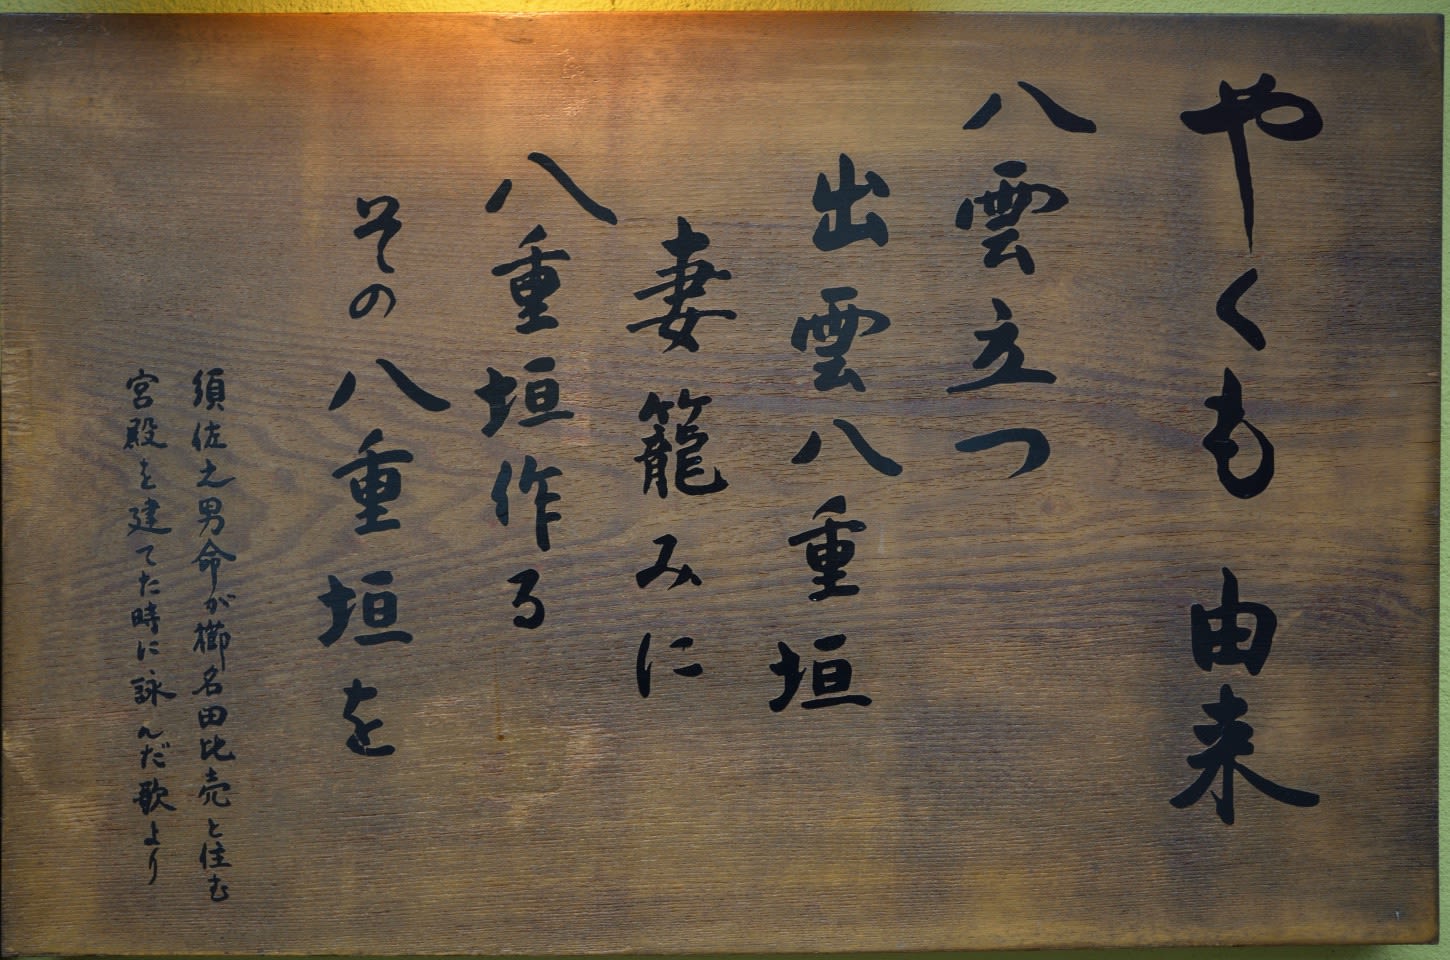 やくも 由来
八雲立つ
出雲八重垣
妻籠みに
八重垣作る
その八重垣を
須佐之男命が櫛名田比売と住む
宮殿を建てた時に詠んだ歌より